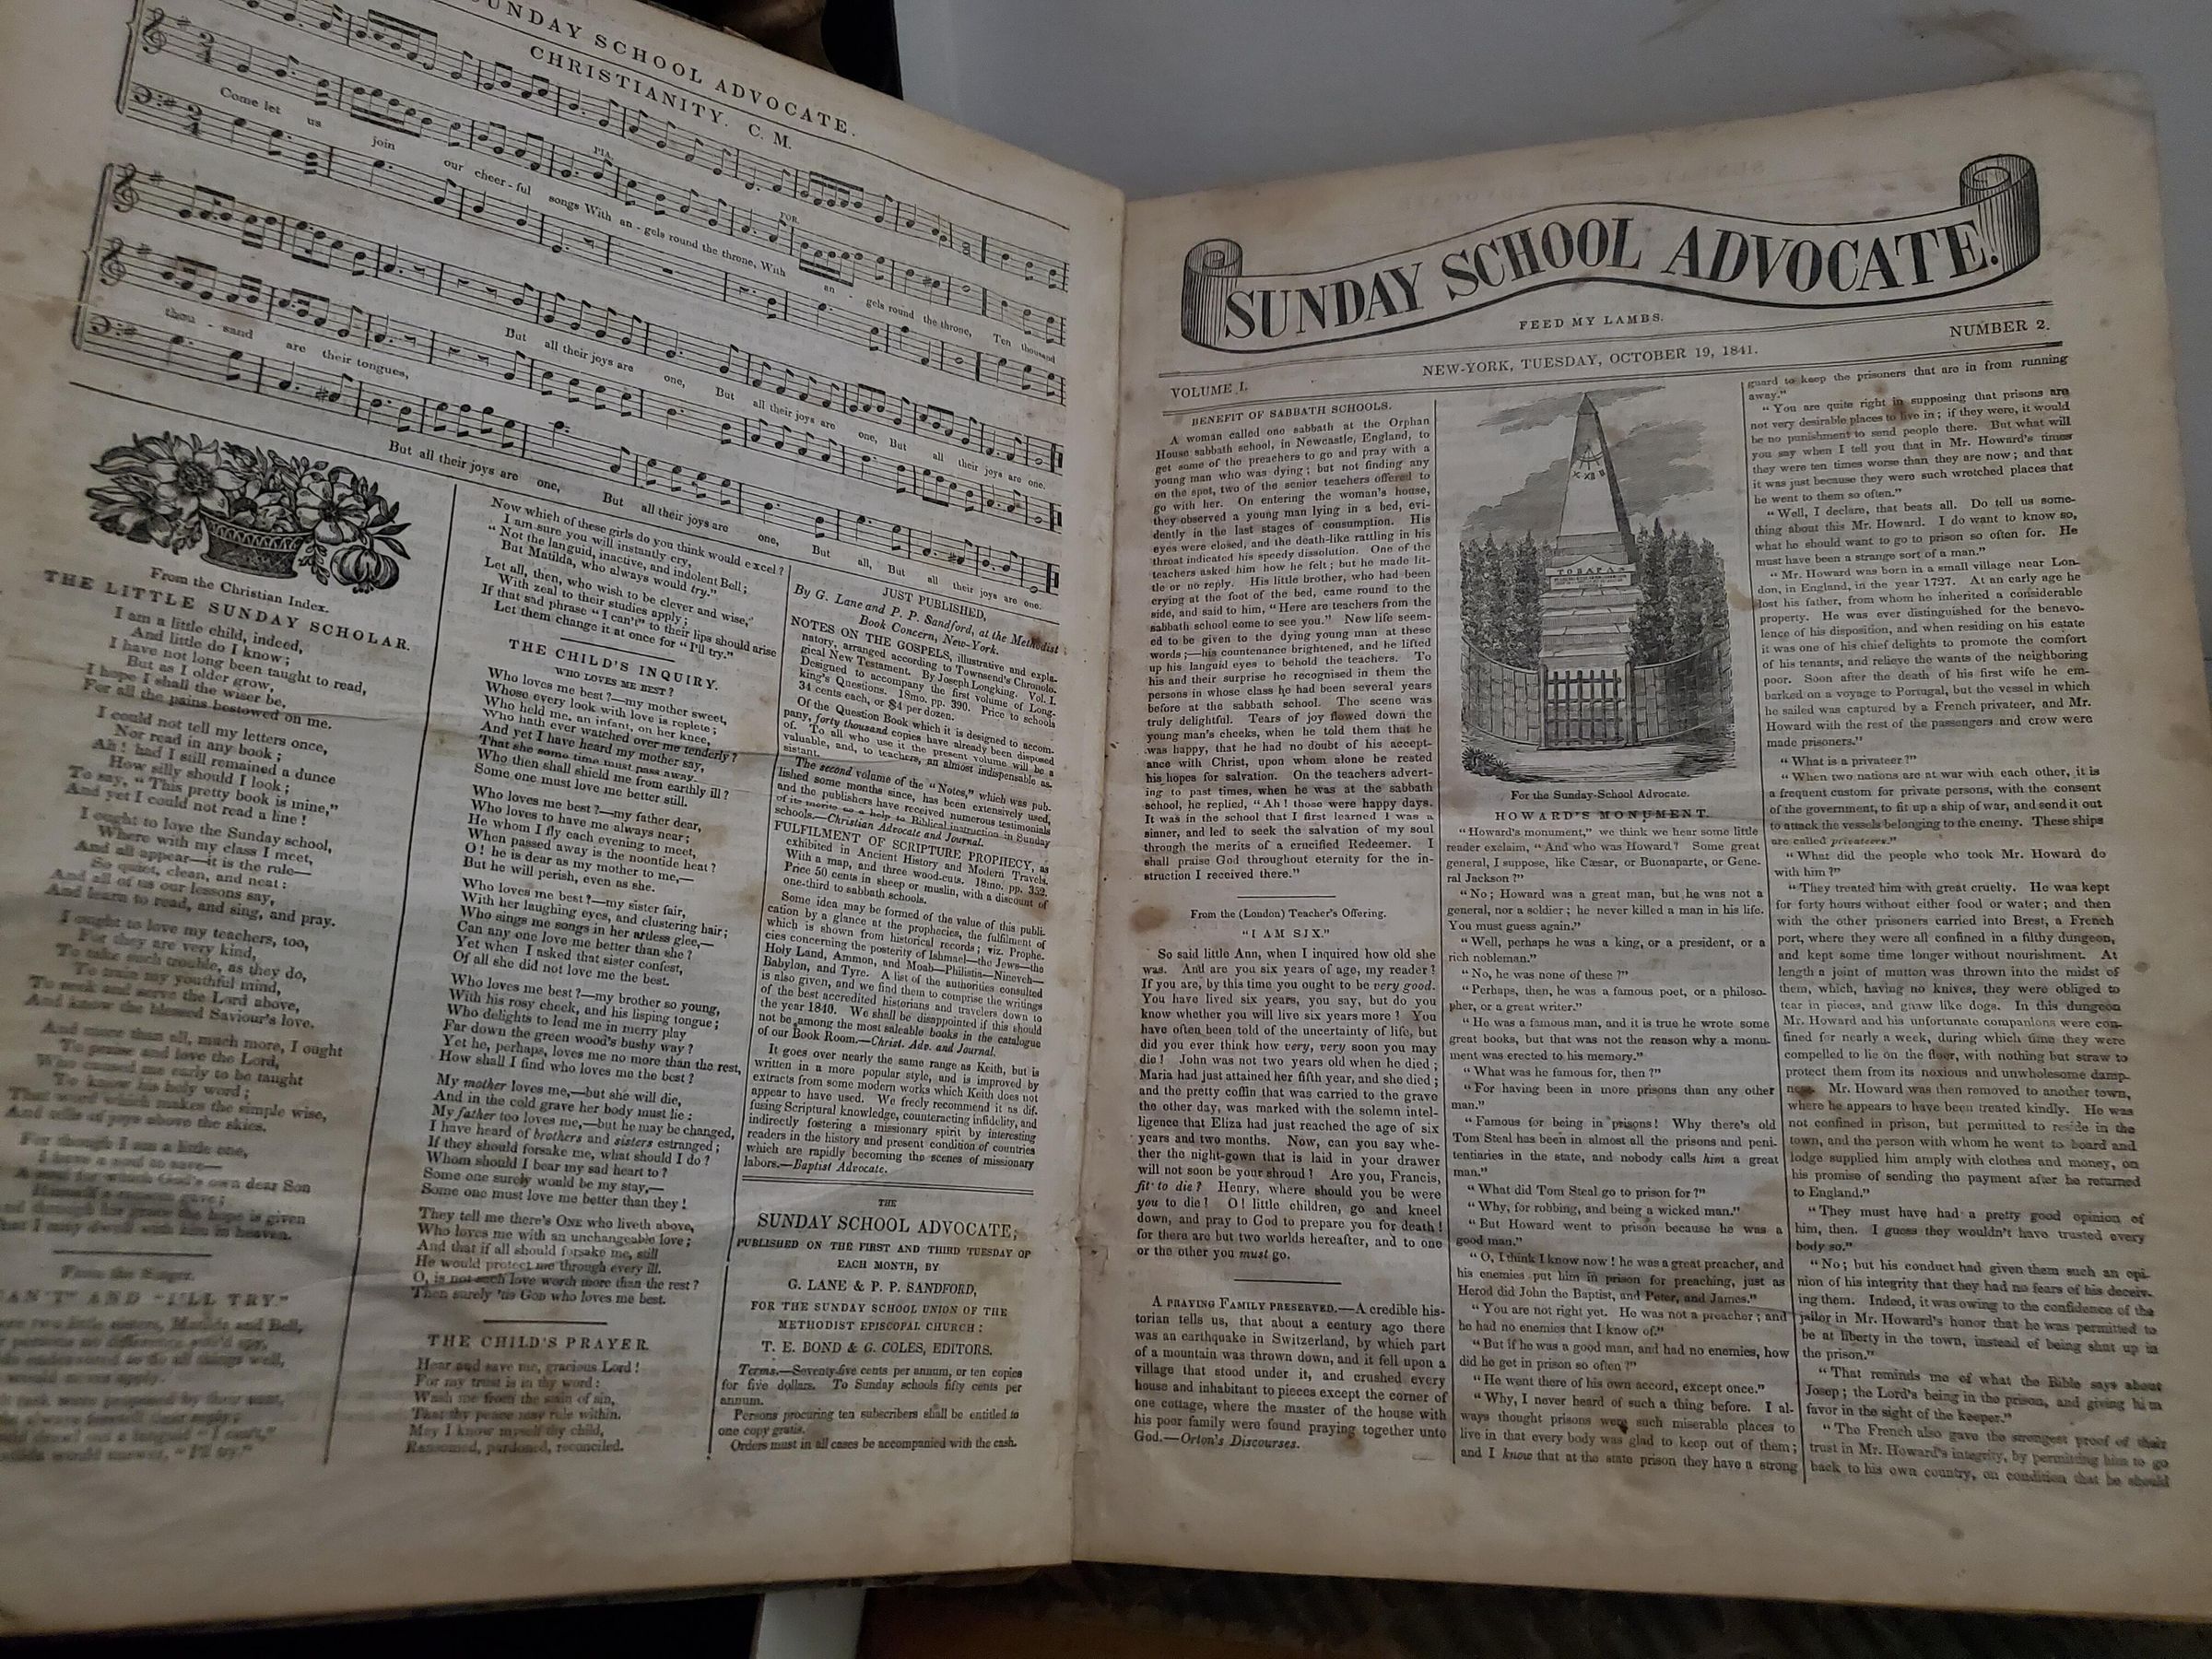 SUNDAY SCHOOL ADVOCATE.
CHRISTIANITY. C. M.
PIA.
FOR.
Come let us join our cheer - ful songs With an - gels round the throne, With an - gels round the throne, Ten thousand
thou - sand are their tongues, But all their joys are one, But all their joys are one, But all their joys are one.
But all their joys are one, But all their joys are one, But all, But all their joys are one.
From the Christian Index.
THE LITTLE SUNDAY SCHOLAR.
I am a little child, indeed,
And little do I know;
I have not long been taught to read,
But as I older grow,
I hope I shall the wiser be,
For all the pains bestowed on me.
I could not tell my letters once,
Nor read in any book;
Ah! had I still remained a dunce
How silly should I look;
To say, "This pretty book is mine,"
And yet I could not read a line!
I ought to love the Sunday school,
Where with my class I meet,
And all appear—it is the rule—
So quiet, clean, and neat:
And all of us our lessons say,
And learn to read, and sing, and pray.
I ought to love my teachers, too,
For they are very kind,
To take such trouble, as they do,
To train my youthful mind,
To seek and serve the Lord above,
And know the blessed Saviour's love.
And more than all, much more, I ought
To praise and love the Lord,
Who caused me early to be taught
To know his holy word;
That word which makes the simple wise,
And tells of joys above the skies.
For though I am a little one,
I have a soul to save—
A soul for which God's own dear Son
Himself a ransom gave;
And through his grace the hope is given
That I may dwell with him in heaven.
From the
"I'LL TRY."
two little sisters, Matilda and Bell,
"I can't,"
"I'll try."
Now which of these girls do you think would excel?
I am sure you will instantly cry,
"Not the languid, inactive, and indolent Bell;
But Matilda, who always would try."
Let all, then, who wish to be clever and wise,
With zeal to their studies apply;
If that sad phrase "I can't" to their lips should arise
Let them change it at once for "I'll try."
THE CHILD'S INQUIRY.
WHO LOVES ME BEST?
Who loves me best?—my mother sweet,
Whose every look with love is replete;
Who held me, an infant, on her knee,
Who hath ever watched over me tenderly?
And yet I have heard my mother say,
That she some time must pass away—
Who then shall shield me from earthly ill?
Some one must love me better still.
Who loves me best?—my father dear,
Who loves to have me always near;
He whom I fly each evening to meet,
When passed away is the noontide heat?
O! he is dear as my mother to me,—
But he will perish, even as she.
Who loves me best?—my sister fair,
With her laughing eyes, and clustering hair;
Who sings me songs in her artless glee,—
Can any one love me better than she?
Yet when I asked that sister confest,
Of all she did not love me the best.
Who loves me best?—my brother so young,
With his rosy cheek, and his lisping tongue;
Who delights to lead me in merry play
Far down the green wood's bushy way?
Yet he, perhaps, loves me no more than the rest,
How shall I find who loves me the best?
My mother loves me,—but she will die,
And in the cold grave her body must lie:
My father too loves me,—but he may be changed,
I have heard of brothers and sisters estranged;
If they should forsake me, what should I do?
Whom should I bear my sad heart to?
Some one surely would be my stay,—
Some one must love me better than they!
They tell me there's ONE who liveth above,
Who loves me with an unchangeable love;
And that if all should forsake me, still
He would protect me through every ill.
O, is not such love worth more than the rest?
Then surely 'tis GOD who loves me best.
THE CHILD'S PRAYER.
Hear and save me, gracious Lord!
For my trust is in thy word:
Wash me from the stain of sin,
That thy peace may rule within.
May I know myself thy child,
Ransomed, pardoned, reconciled.
JUST PUBLISHED,
By G. Lane and P. P. Sandford, at the Methodist
Book Concern, New-York.
NOTES ON THE GOSPELS, illustrative and expla-
natory, arranged according to Townsend's Chronolo-
gical New Testament. By Joseph Longking. Vol. I.
Designed to accompany the first volume of Long-
king's Questions. 18mo, pp. 390. Price to schools
34 cents each, or $4 per dozen.
Of the Question Book which it is designed to accom-
pany, forty thousand copies have already been disposed
of. To all who use it the present volume will be a
valuable, and, to teachers, an almost indispensable as-
sistant.
The second volume of the "Notes," which was pub-
lished some months since, has been extensively used,
and the publishers have received numerous testimonials
of its merits as a help to Biblical instruction in Sunday
schools.—Christian Advocate and Journal.
FULFILMENT OF SCRIPTURE PROPHECY, as
exhibited in Ancient History and Modern Travels.
With a map, and three wood-cuts. 18mo. pp. 352.
Price 50 cents in sheep or muslin, with a discount of
one-third to sabbath schools.
Some idea may be formed of the value of this publi-
cation by a glance at the prophecies, the fulfilment of
which is shown from historical records; viz. Prophe-
cies concerning the posterity of Ishmael—the Jews—the
Holy Land, Ammon, and Moab—Philistia—Nineveh—
Babylon, and Tyre. A list of the authorities consulted
is also given, and we find them to comprise the writings
of the best accredited historians and travelers down to
the year 1840. We shall be disappointed if this should
not be among the most saleable books in the catalogue
of our Book Room.—Christ. Adv. and Journal.
It goes over nearly the same range as Keith, but is
written in a more popular style, and is improved by
extracts from some modern works which Keith does not
appear to have used. We freely recommend it as dif-
fusing Scriptural knowledge, counteracting infidelity, and
indirectly fostering a missionary spirit by interesting
readers in the history and present condition of countries
which are rapidly becoming the scenes of missionary
labors.—Baptist Advocate.
THE
SUNDAY SCHOOL ADVOCATE;
PUBLISHED ON THE FIRST AND THIRD TUESDAY OF
EACH MONTH, BY
G. LANE & P. P. SANDFORD,
FOR THE SUNDAY SCHOOL UNION OF THE
METHODIST EPISCOPAL CHURCH:
T. E. BOND & G. COLES, EDITORS.
Terms.—Seventy-five cents per annum, or ten copies
for five dollars. To Sunday schools fifty cents per
annum.
Persons procuring ten subscribers shall be entitled to
one copy gratis.
Orders must in all cases be accompanied with the cash.
SUNDAY SCHOOL ADVOCATE.
FEED MY LAMBS.
VOLUME I. NEW-YORK, TUESDAY, OCTOBER 19, 1841. NUMBER 2.
BENEFIT OF SABBATH SCHOOLS.
A woman called one sabbath at the Orphan
House sabbath school, in Newcastle, England, to
get some of the preachers to go and pray with a
young man who was dying; but not finding any
on the spot, two of the senior teachers offered to
go with her. On entering the woman's house,
they observed a young man lying in a bed, evi-
dently in the last stages of consumption. His
eyes were closed, and the death-like rattling in his
throat indicated his speedy dissolution. One of the
teachers asked him how he felt; but he made lit-
tle or no reply. His little brother, who had been
crying at the foot of the bed, came round to the
side, and said to him, "Here are teachers from the
sabbath school come to see you." New life seem-
ed to be given to the dying young man at these
words;—his countenance brightened, and he lifted
up his languid eyes to behold the teachers. To
his and their surprise he recognised in them the
persons in whose class he had been several years
before at the sabbath school. The scene was
truly delightful. Tears of joy flowed down the
young man's cheeks, when he told them that he
was happy, that he had no doubt of his accept-
ance with Christ, upon whom alone he rested
his hopes for salvation. On the teachers advert-
ing to past times, when he was at the sabbath
school, he replied, "Ah! those were happy days.
It was in the school that I first learned I was a
sinner, and led to seek the salvation of my soul
through the merits of a crucified Redeemer. I
shall praise God throughout eternity for the in-
struction I received there."
From the (London) Teacher's Offering.
"I AM SIX."
So said little Ann, when I inquired how old she
was. And are you six years of age, my reader?
If you are, by this time you ought to be very good.
You have lived six years, you say, but do you
know whether you will live six years more? You
have often been told of the uncertainty of life, but
did you ever think how very, very soon you may
die! John was not two years old when he died;
Maria had just attained her fifth year, and she died;
and the pretty coffin that was carried to the grave
the other day, was marked with the solemn intel-
ligence that Eliza had just reached the age of six
years and two months. Now, can you say whe-
ther the night-gown that is laid in your drawer
will not soon be your shroud! Are you, Francis,
fit to die? Henry, where should you be were
you to die! O! little children, go and kneel
down, and pray to God to prepare you for death!
for there are but two worlds hereafter, and to one
or the other you must go.
A PRAYING FAMILY PRESERVED.—A credible his-
torian tells us, that about a century ago there
was an earthquake in Switzerland, by which part
of a mountain was thrown down, and it fell upon a
village that stood under it, and crushed every
house and inhabitant to pieces except the corner of
one cottage, where the master of the house with
his poor family were found praying together unto
God.—Orton's Discourses.
XII
TO PAPA
For the Sunday-School Advocate.
HOWARD'S MONUMENT.
"Howard's monument," we think we hear some little
reader exclaim, "And who was Howard? Some great
general, I suppose, like Cæsar, or Buonaparte, or Gene-
ral Jackson?"
"No; Howard was a great man, but he was not a
general, nor a soldier; he never killed a man in his life.
You must guess again."
"Well, perhaps he was a king, or a president, or a
rich nobleman."
"No, he was none of these?"
"Perhaps, then, he was a famous poet, or a philoso-
pher, or a great writer."
"He was a famous man, and it is true he wrote some
great books, but that was not the reason why a monu-
ment was erected to his memory."
"What was he famous for, then?"
"For having been in more prisons than any other
man."
"Famous for being in prisons! Why there's old
Tom Steal has been in almost all the prisons and peni-
tentiaries in the state, and nobody calls him a great
man."
"What did Tom Steal go to prison for?"
"Why, for robbing, and being a wicked man."
"But Howard went to prison because he was a
good man."
"O, I think I know now! he was a great preacher, and
his enemies put him in prison for preaching, just as
Herod did John the Baptist, and Peter, and James."
"You are not right yet. He was not a preacher; and
he had no enemies that I know of."
"But if he was a good man, and had no enemies, how
did he get in prison so often?"
"He went there of his own accord, except once."
"Why, I never heard of such a thing before. I al-
ways thought prisons were such miserable places to
live in that every body was glad to keep out of them;
and I know that at the state prison they have a strong
guard to keep the prisoners that are in from running
away."
"You are quite right in supposing that prisons are
not very desirable places to live in; if they were, it would
be no punishment to send people there. But what will
you say when I tell you that in Mr. Howard's times
they were ten times worse than they are now; and that
it was just because they were such wretched places that
he went to them so often."
"Well, I declare, that beats all. Do tell us some-
thing about this Mr. Howard. I do want to know so,
what he should want to go to prison so often for. He
must have been a strange sort of a man."
"Mr. Howard was born in a small village near Lon-
don, in England, in the year 1727. At an early age he
lost his father, from whom he inherited a considerable
property. He was ever distinguished for the benevo-
lence of his disposition, and when residing on his estate
it was one of his chief delights to promote the comfort
of his tenants, and relieve the wants of the neighboring
poor. Soon after the death of his first wife he em-
barked on a voyage to Portugal, but the vessel in which
he sailed was captured by a French privateer, and Mr.
Howard with the rest of the passengers and crew were
made prisoners."
"What is a privateer?"
"When two nations are at war with each other, it is
a frequent custom for private persons, with the consent
of the government, to fit up a ship of war, and send it out
to attack the vessels belonging to the enemy. These ships
are called privateers."
"What did the people who took Mr. Howard do
with him?"
"They treated him with great cruelty. He was kept
for forty hours without either food or water; and then
with the other prisoners carried into Brest, a French
port, where they were all confined in a filthy dungeon,
and kept some time longer without nourishment. At
length a joint of mutton was thrown into the midst of
them, which, having no knives, they were obliged to
tear in pieces, and gnaw like dogs. In this dungeon
Mr. Howard and his unfortunate companions were con-
fined for nearly a week, during which time they were
compelled to lie on the floor, with nothing but straw to
protect them from its noxious and unwholesome damp-
ness. Mr. Howard was then removed to another town,
where he appears to have been treated kindly. He was
not confined in prison, but permitted to reside in the
town, and the person with whom he went to board and
lodge supplied him amply with clothes and money, on
his promise of sending the payment after he returned
to England."
"They must have had a pretty good opinion of
him, then. I guess they wouldn't have trusted every
body so."
"No; but his conduct had given them such an opi-
nion of his integrity that they had no fears of his deceiv-
ing them. Indeed, it was owing to the confidence of the
jailor in Mr. Howard's honor that he was permitted to
be at liberty in the town, instead of being shut up in
the prison."
"That reminds me of what the Bible says about
Josep; the Lord's being in the prison, and giving him
favor in the sight of the keeper."
"The French also gave the strongest proof of their
trust in Mr. Howard's integrity, by permitting him to go
back to his own country, on condition that he should